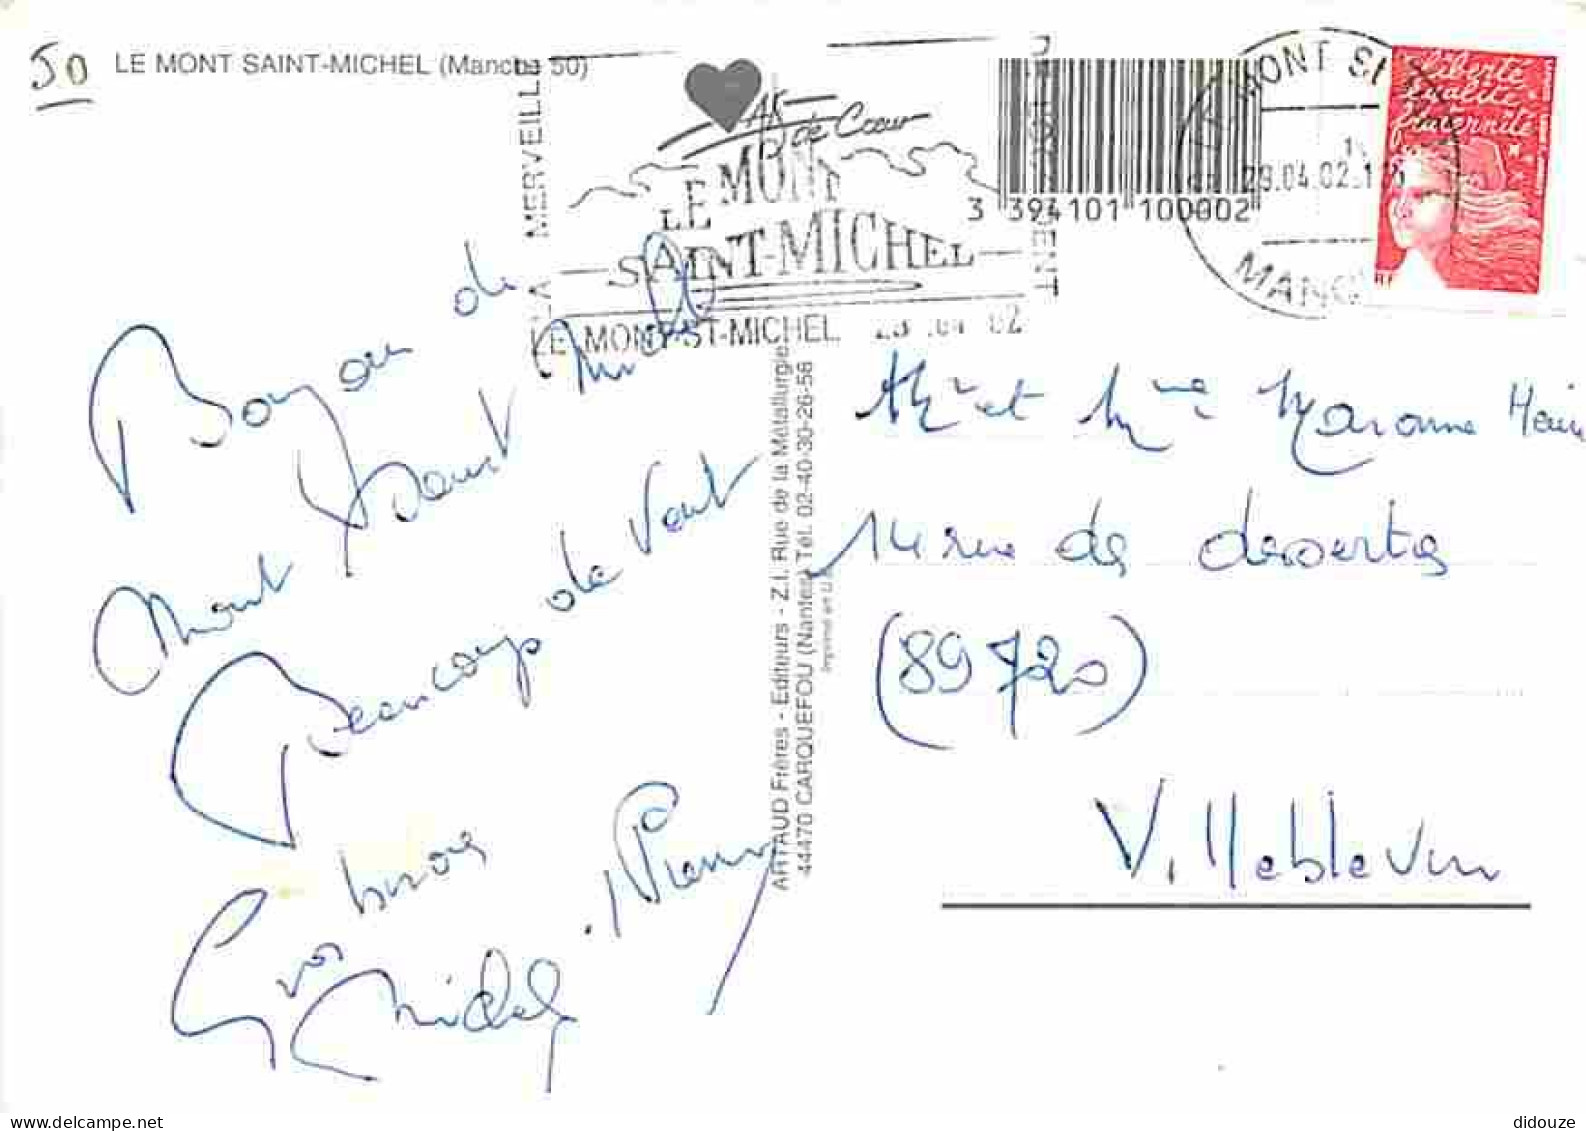 50
LE MONT SAINT-MICHEL (Manche 50)
LA MERVEILLE
de Cœur
LE MONT
SAINT-MICHEL
LE MONT-ST-MICHEL 29 .04 02
3 394101 100002
LE MONT ST
29.04.02
MANCHE
liberté
égalité
fraternité
RF
Bonjour de
Mont Saint Michel
Beaucoup de Vent
Gros bisous
Michel . Pierre
ARTAUD Frères - Editeurs - Z.I. Rue de la Métallurgie
44470 CARQUEFOU (Nantes) Tél. 02-40-30-26-56
Imprimé en U.E.
Mr et Mme
14 rue des desertes
(89720)
Villeblevin
didouze